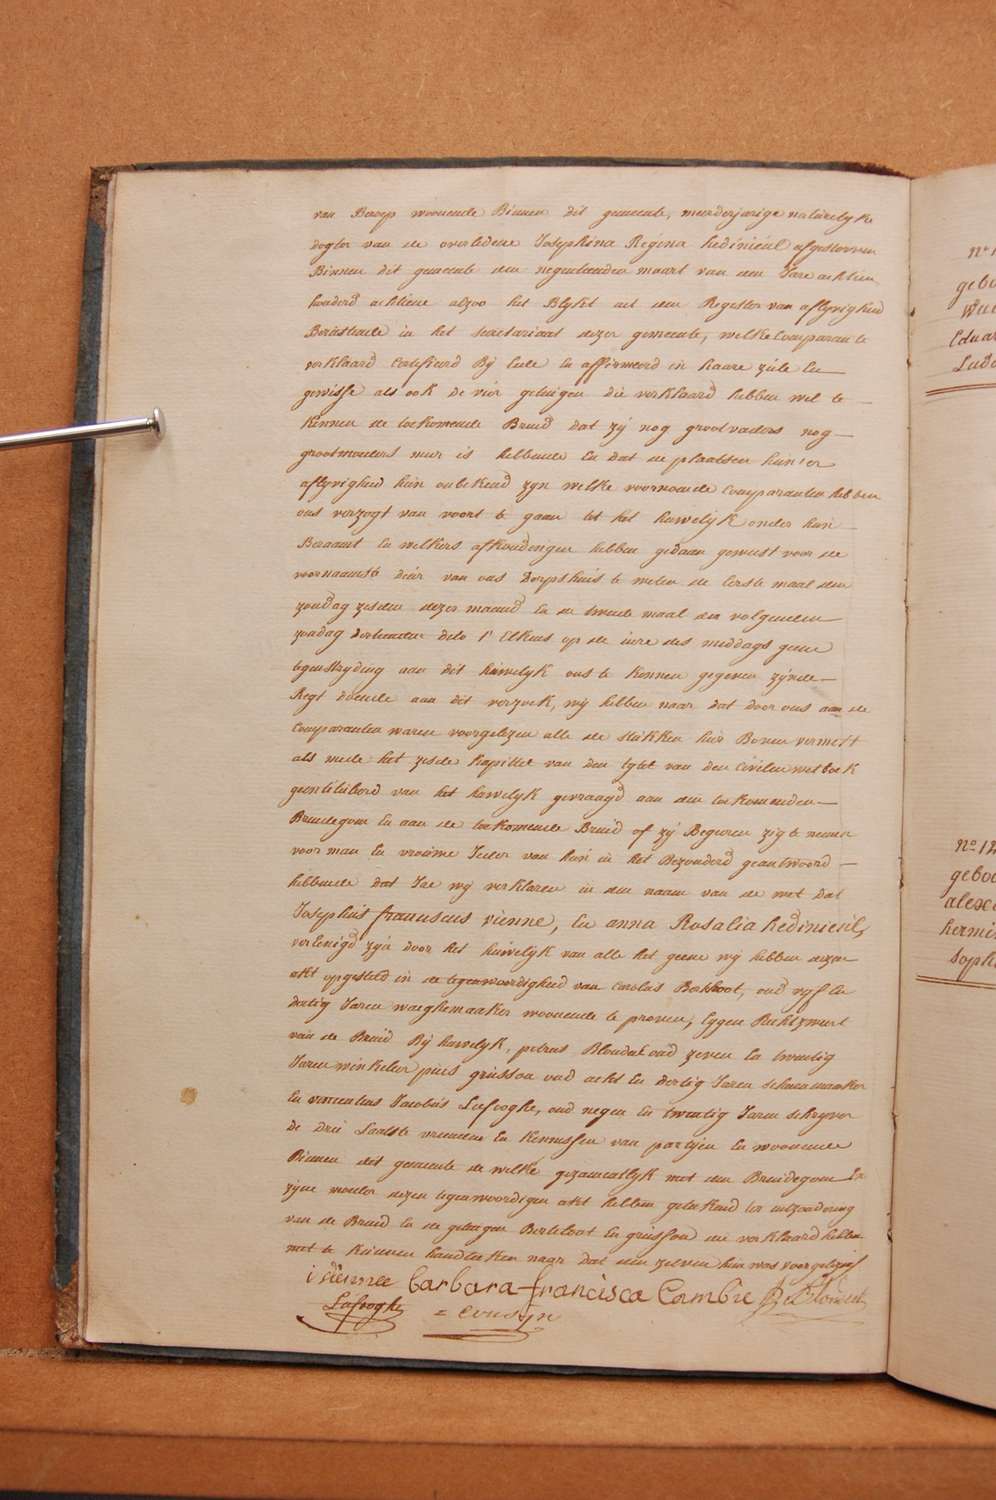 van Beroep woonende Binnen dit gemeente, meerderjarige natuurlyke
dogter van de overledene Josephina Regina hediniëul afgestorven
Binnen dit gemeente den negenthienden maart van den Jare achtien
honderd achtiene alzoo het Blykt uit den Register van aflyvigheid
Berustende in het secretariaat dezer gemeente, welke Comparante
verklaard Certifieerd By Eede En affirmeerd in haare ziele En
gewisse als ook de vier getuigen die verklaard hebben wel te
kennen de toekomende Bruid dat zy nog grootvaders nog
grootmoeders meer is hebbende En dat de plaatsen hunner
aflyvigheid hun onbekend zyn welke voornoemde Comparanten hebben
ons verzogt van voort te gaan tot het huwelyk onder hun
Beraamt En welkers afkondingen hebben gedaan geweest voor de
voornaamste deur van ons Dorpshuis te weten de Eerste maal den
zondag zesden dezer maand En de tweede maal den volgenden
zondag dertienden dito 1' Elkens op de ure des middags geene
tegenstryding aan dit huwelyk ons te kennen gegeven zynde
Regt doende aan dit verzoek, wy hebben naar dat door ons aan de
Comparanten waren voorgelezen alle de stukken hier Boven vermelt
als mede het zesde kapittel van den tytel van den Civilen wetboek
geintituleerd van het huwelyk gevraagd aan den toekomenden
Bruidegom En aan de toekomende Bruid of zy Begeeren zig te nemen
voor man En vrouwe Ieder van hun in het Bezonderd geantwoord
hebbende dat Jae wy verklaren in den naam van de wet dat
Josephus franciscus vienne, En anna Rosalia hediniëul,
verEenigd zyn door het huwelyk van alle het geene wy hebben dezen
akt opgesteld in de tegenwoordigheid van Carolus Bekhoot, oud vyf En
dertig Jaren waeghemaaker woonende te proven, Eygen
van de Bruid By huwelyk, petrus Blondel oud zeven En twintig
Jaren winkelier pius grisson oud acht En dertig Jaren schoenmaker
En vincentius Jacobus Lafooghe, oud negen En twentig Jaren schryver
de drie Laatste vrienden En kennissen van partyen En woonende
Binnen dit gemeente de welke gezamentlyk met den Bruidegom En
zyne moeder dezen tegenwoordigen akt hebben geteekend ter uitzondering
van de Bruid En de getuigen En grisson die verklaard hebben
niet te kunnen handteeken naer dat den zelven hun was voorgelezen
j vienne barbara francisca Cambie Blondel
Lafooghe = Cousyn
N°
gebo
Edua
Ludo
N° 12
geboo
alexa
hermin
Sophi